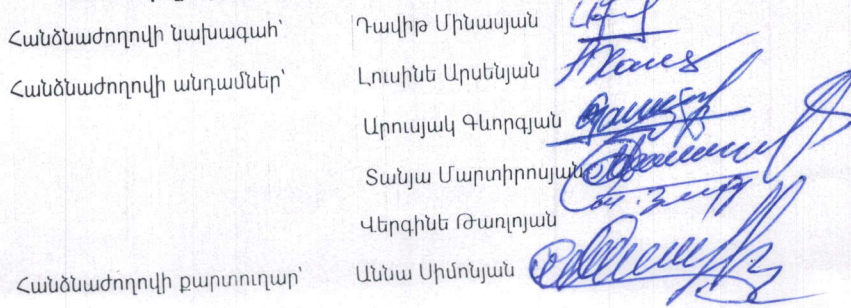 Հանձնաժողովի նախագահ՝ Դավիթ Մինասյան
Հանձնաժողովի անդամներ՝ Լուսինե Արսենյան
Արուսյակ Գևորգյան
Տանյա Մարտիրոսյան
Վերգինե Թառլոյան
Հանձնաժողովի քարտուղար՝ Աննա Սիմոնյան